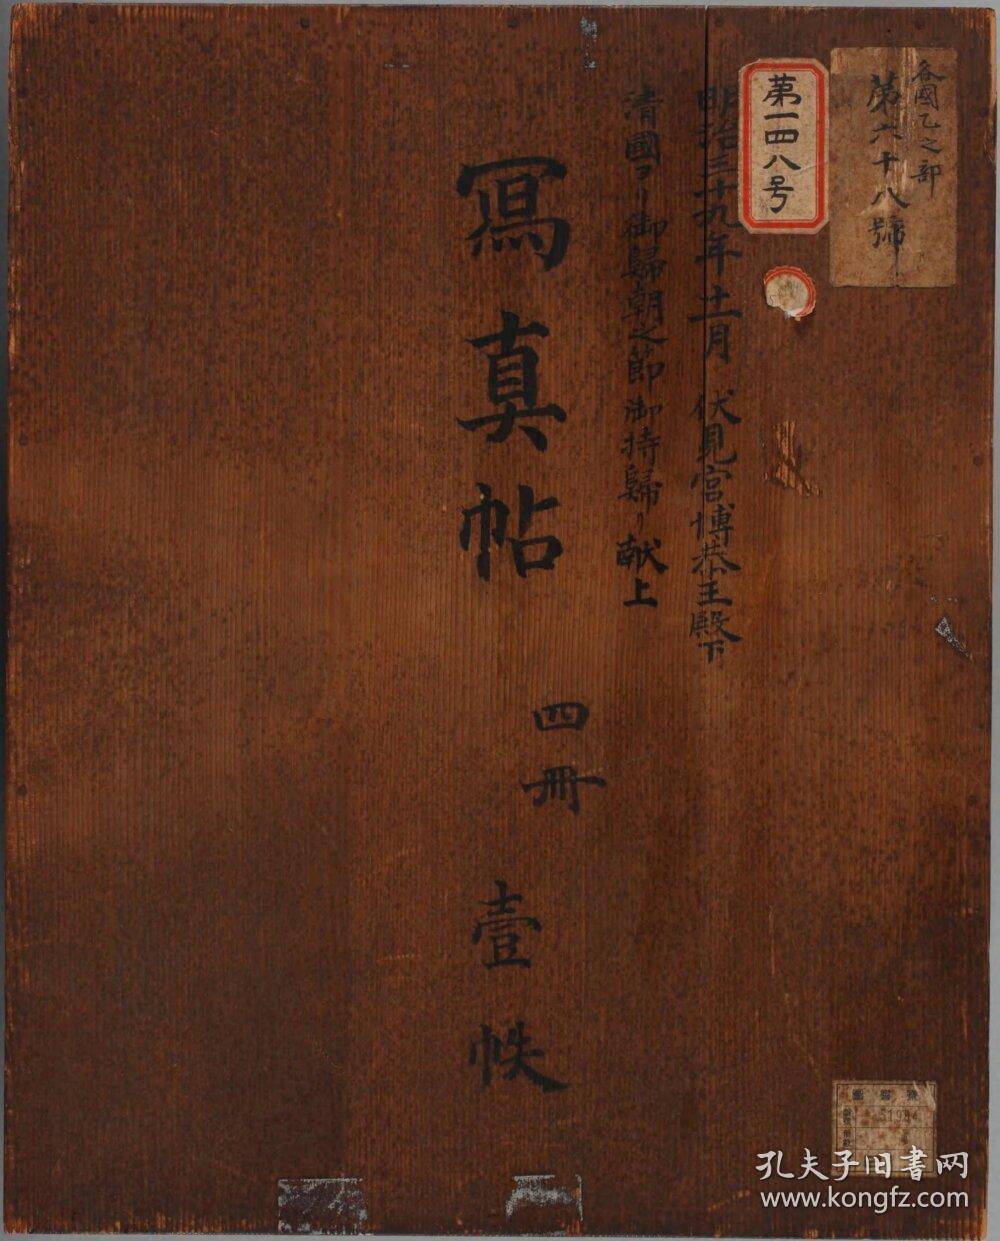 各國乙之部
第六十八號
第一四八号
明治三十九年十一月 伏見宮博恭王殿下
清國ヨリ御歸朝之節御持歸リ献上
寫真帖
四冊
壹帙
圖書
51984
4
孔夫子旧書网
www.kongfz.com